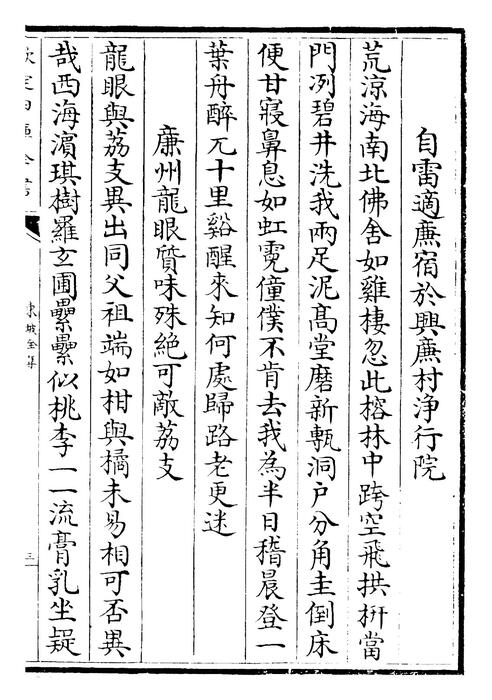 自雷適廉宿於興廉村淨行院
荒涼海南北佛舍如雞棲忽此榕林中跨空飛拱枅當
門冽碧井洗我兩足泥髙堂磨新甎洞户分角圭倒床
便甘寢鼻息如虹霓僮僕不肯去我為半日稽晨登一
葉舟醉兀十里谿醒來知何處歸路老更迷
廉州龍眼質味殊絶可敵荔支
龍眼與荔支異出同父祖端如柑與橘未易相可否異
哉西海濵琪樹羅玄圃纍纍似桃李一一流膏乳坐疑
東坡全集
三